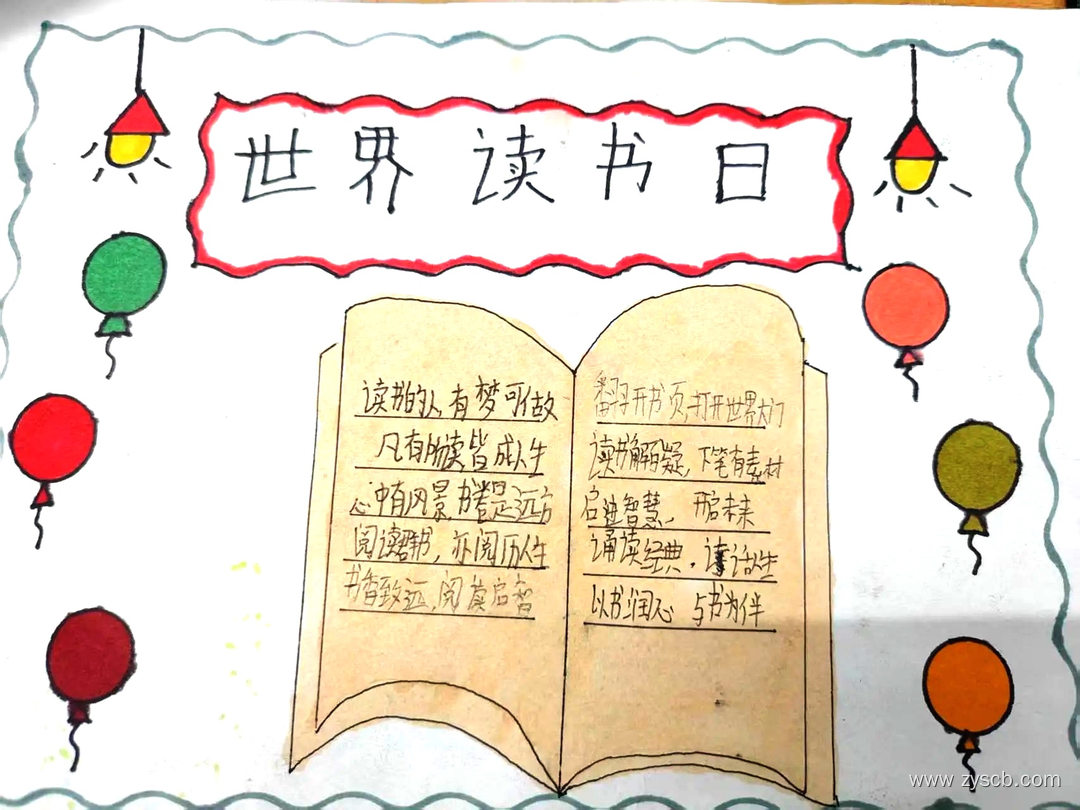 世界读书日
读书的人,有梦可做
凡有所读,皆成人生
心中有风景,书卷是远方
阅读群书,亦阅历人生
书香致远,阅读启智
翻开书页,打开世界大门
读书解疑,下笔有素材
启迪智慧,开启未来
诵读经典,读话人生
以书润心 与书为伴
www.zyscb.com